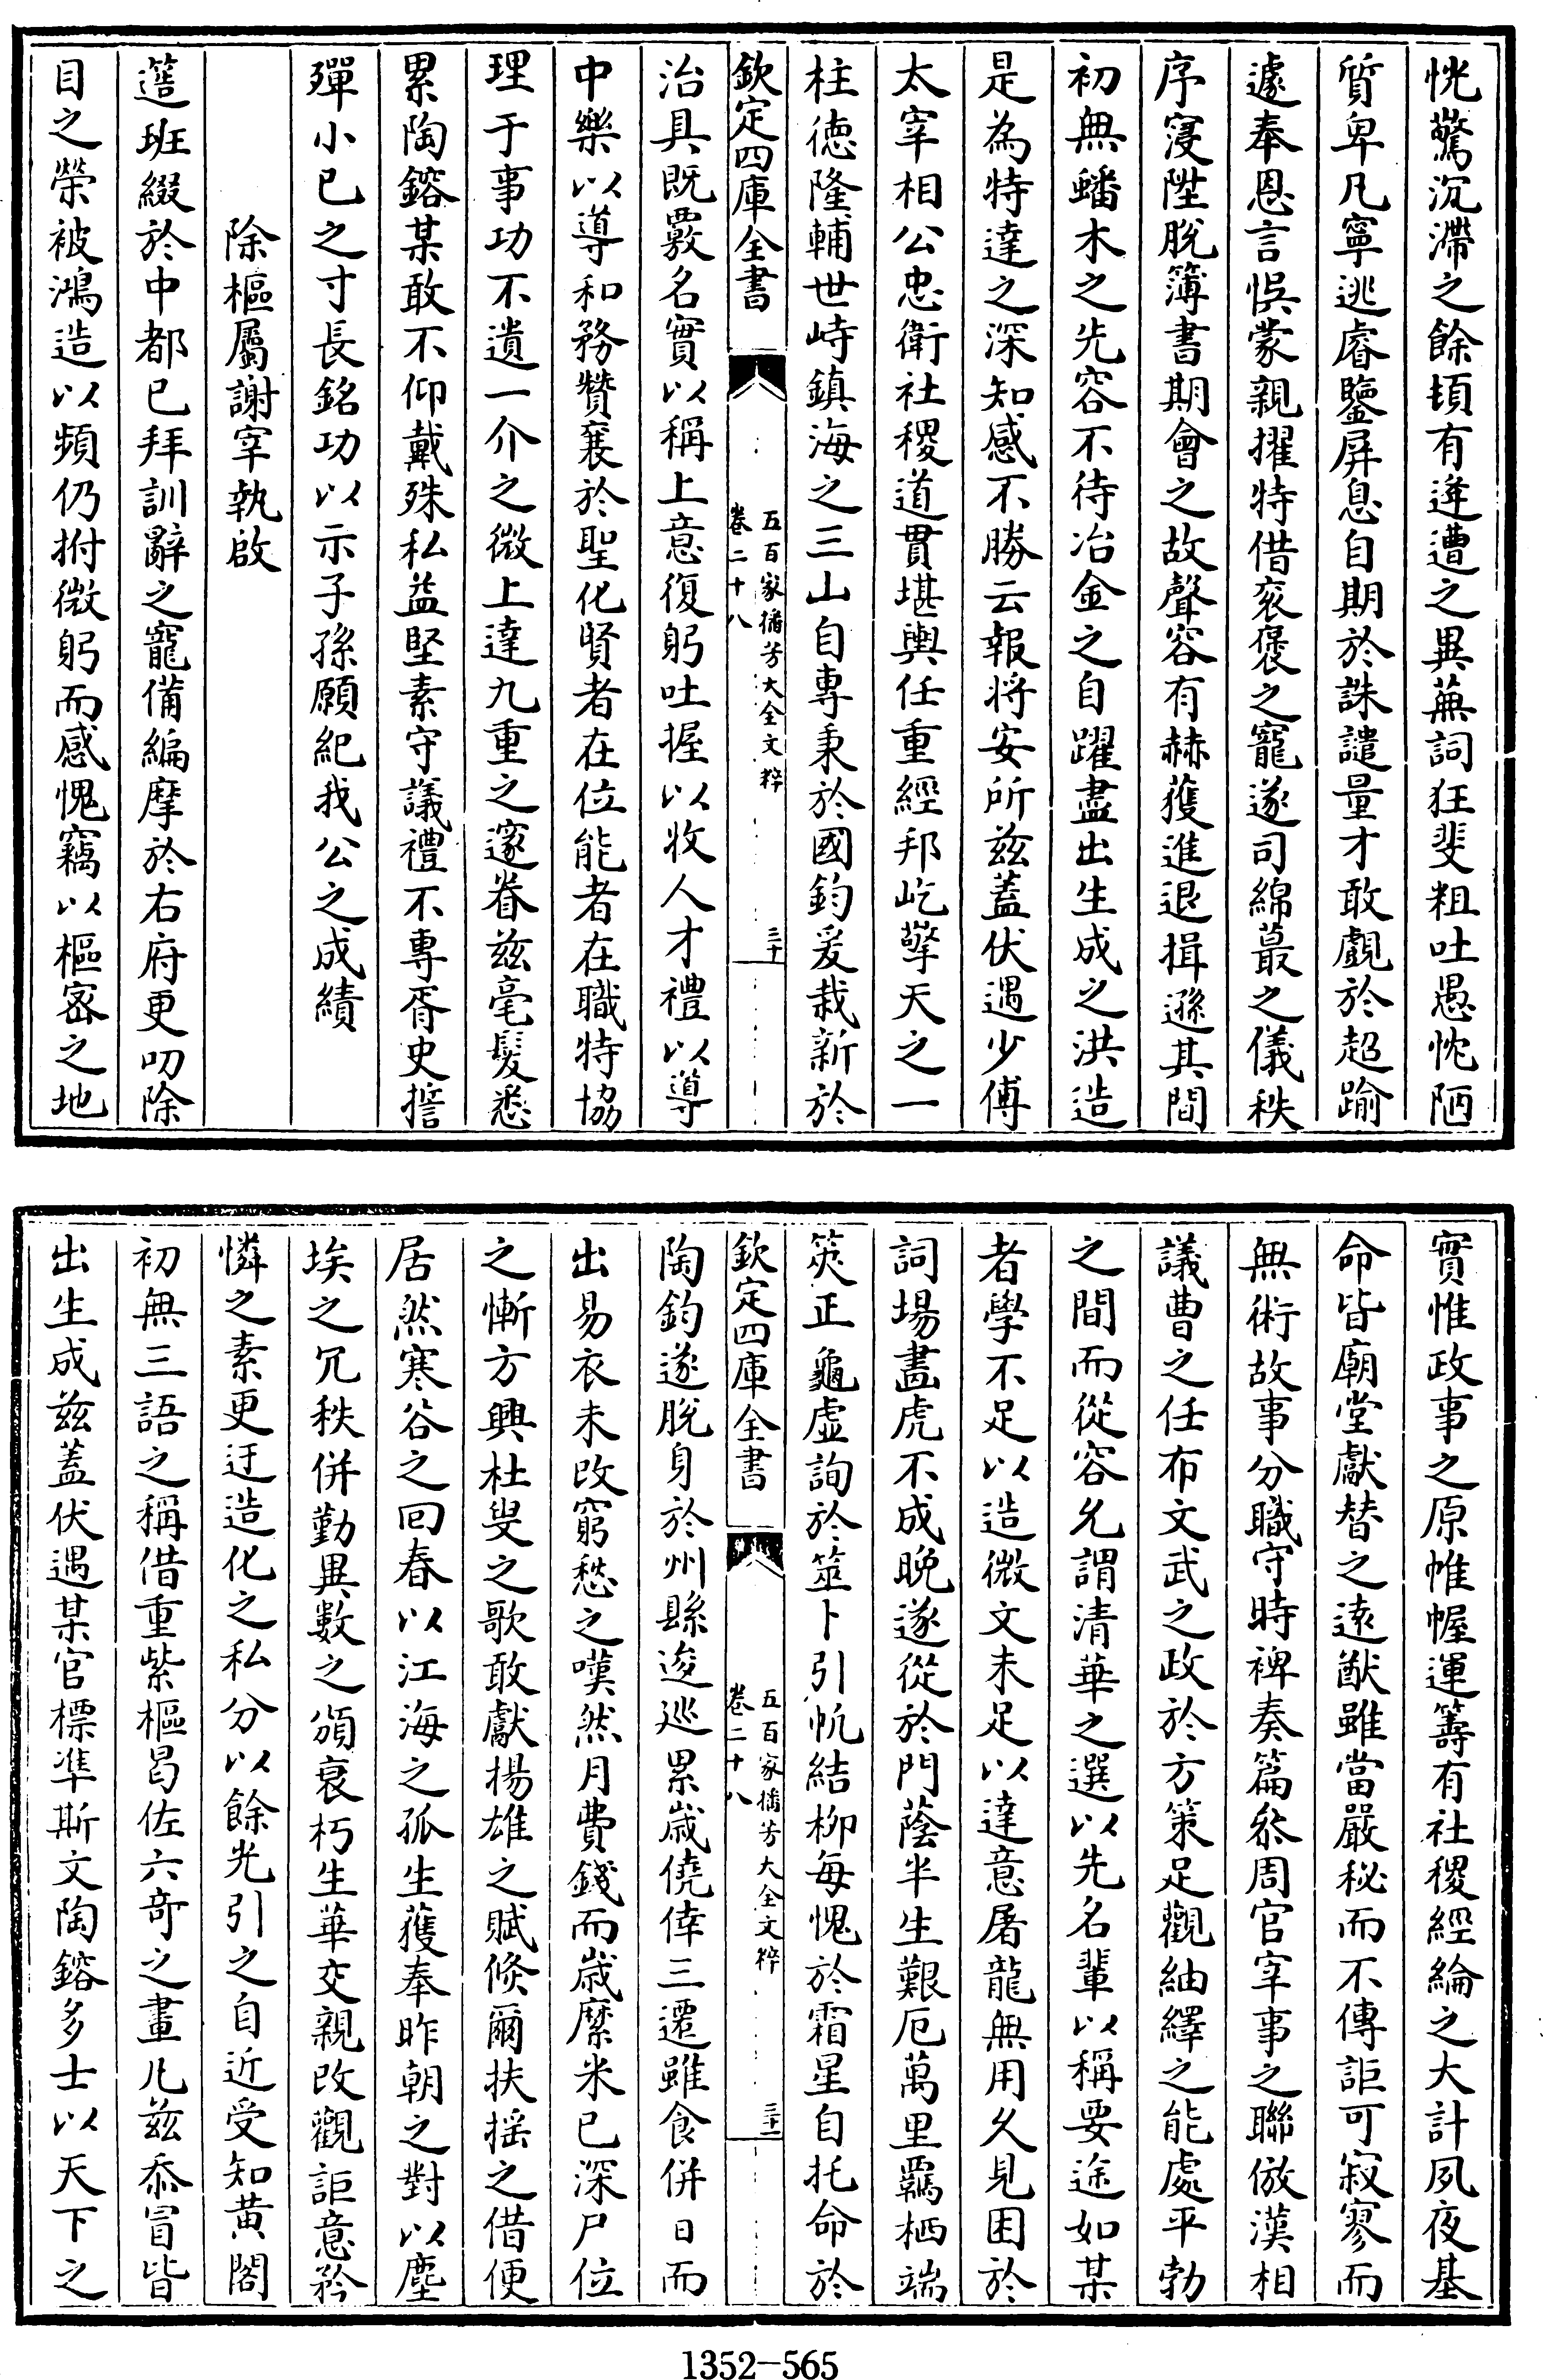 恍驚沉滯之餘頓有遭遭之異蕪詞狂斐粗吐愚忱陋
質卑凡寧逃睿鑒屏息自期於誅譴量才敢覬於超踰
遽奉恩言悞蒙親擢特借衮褒之寵遂司綿蕞之儀秩
序寖陞脫簿書期會之故聲容有赫獲進退揖遜其間
初無蟠木之先容不待冶金之自躍盡出生成之洪造
是為特達之深知感不勝云報将安所兹蓋伏遇少傅
太宰相公忠衛社稷道貫堪輿任重經邦屹擎天之一
柱徳隆輔世峙鎮海之三山自專秉於國鈞爰裁新於
欽定四庫全書
五百家播芳大全文粹
卷二十八
三十
治具既覈名實以稱上意復躬吐握以收人才禮以導
中樂以導和務贊襄於聖化賢者在位能者在職特協
理于事功不遺一介之微上達九重之邃眷兹毫髮悉
累陶鎔某敢不仰戴殊私益堅素守議禮不專胥史誓
殫小已之寸長銘功以示子孫願紀我公之成績
除樞屬謝宰執啟
簉班綴於中都已拜訓辭之寵備編摩於右府更叨除
目之榮被鴻造以頻仍拊微躬而感愧竊以樞宻之地
實惟政事之原帷幄運籌有社稷經綸之大計夙夜基
命皆廟堂獻替之逺猷雖當嚴秘而不傳詎可寂寥而
無術故事分職守時裨奏篇叅周官宰事之聯倣漢相
議曹之任布文武之政於方策足觀紬繹之能處平勃
之間而從容允謂清華之選以先名輩以稱要途如某
者學不足以造微文未足以達意屠龍無用久見困於
詞場畫虎不成晚遂從於門蔭半生艱厄萬里羈栖端
筴正龜虛詢於筮卜引帆結柳每愧於霜星自托命於
欽定四庫全書
五百家播芳大全文粹
卷二十八
三十一
陶鈞遂脫身於州縣逡巡累歲僥倖三遷雖食併日而
出易衣未改窮愁之嘆然月費錢而歲縻米已深尸位
之慚方興杜叟之歌敢獻揚雄之賦倐爾扶搖之借便
居然寒谷之回春以江海之孤生獲奉昨朝之對以塵
埃之冗秩併勤異數之頒衰朽生華交親改觀詎意矜
憐之素更迂造化之私分以餘光引之自近受知黃閣
初無三語之稱借重紫樞曷佐六竒之畫凡兹忝冒皆
出生成兹蓋伏遇某官標準斯文陶鎔多士以天下之
1352-565